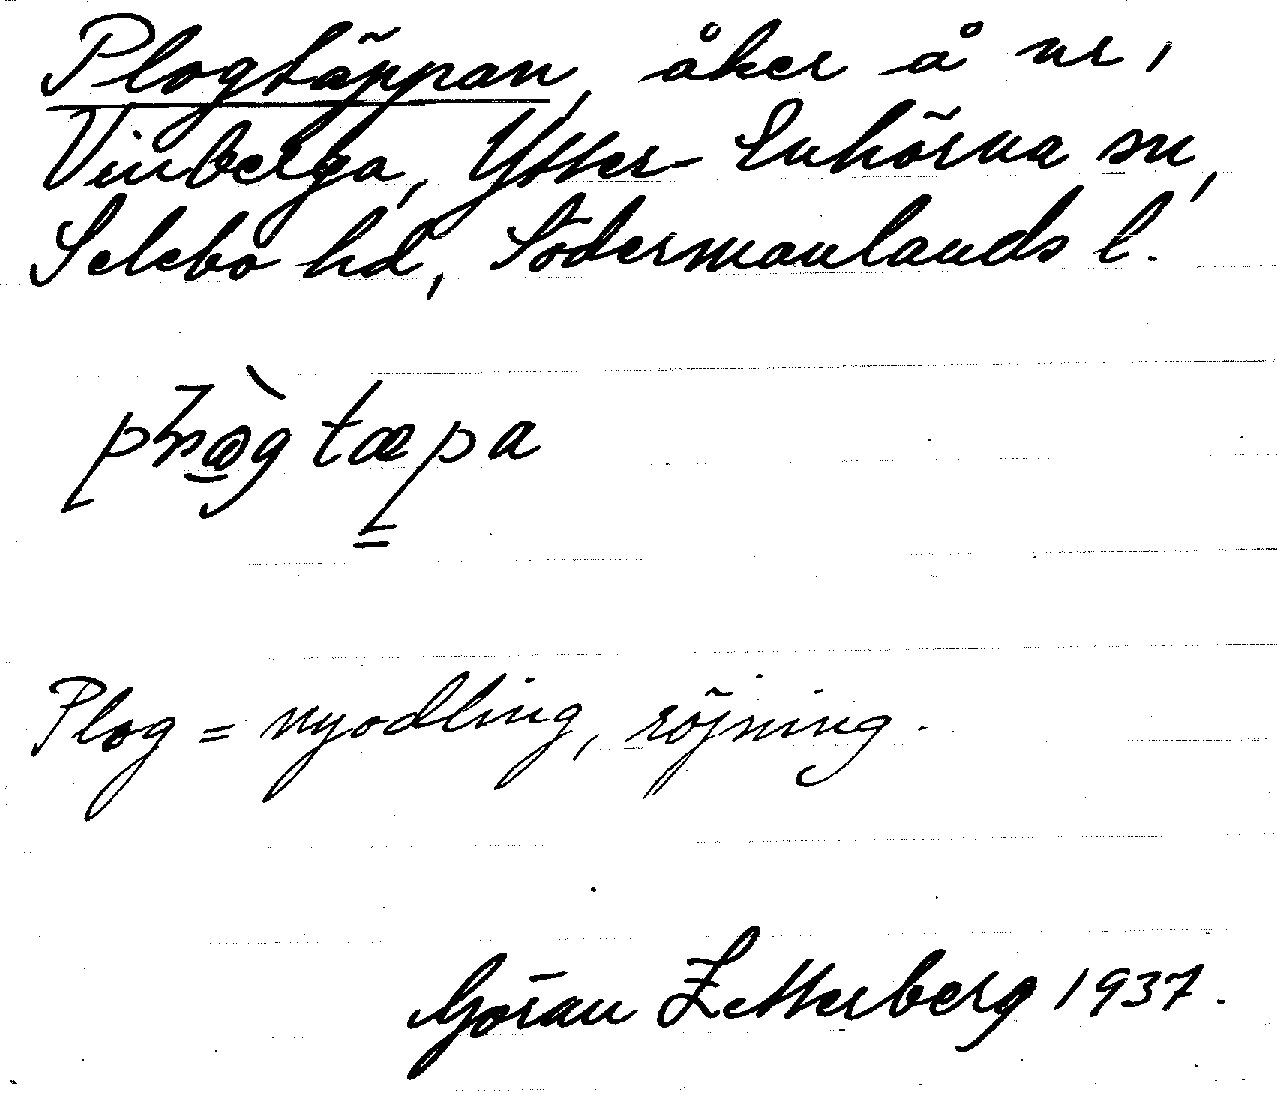 Plogtäppan, åker å nr 1
Vinberga, Ytter-Enhörna sn,
Selebo hd, Södermanlands l.
Plog = nyodling, röjning.
Göran Zetterberg 1937.